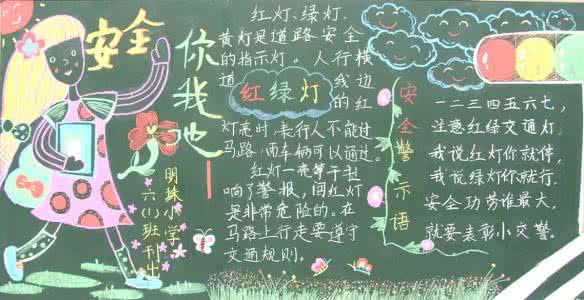 安全
你我他
明珠小学
六(1)班刊出
红灯、绿灯、
黄灯是道路安全
的指示灯。人行横
道线边
的红
红绿灯
灯亮时，表行人不能过
马路，而车辆可以通过。
红灯一亮等于拉
响了警报，闯红灯
是非常危险的。在
马路上行走要遵守
交通规则。
安全警示语
一二三四五六七，
注意红绿交通灯。
我说红灯你就停，
我说绿灯你就行。
安全功劳谁最大，
就要表彰小交警。